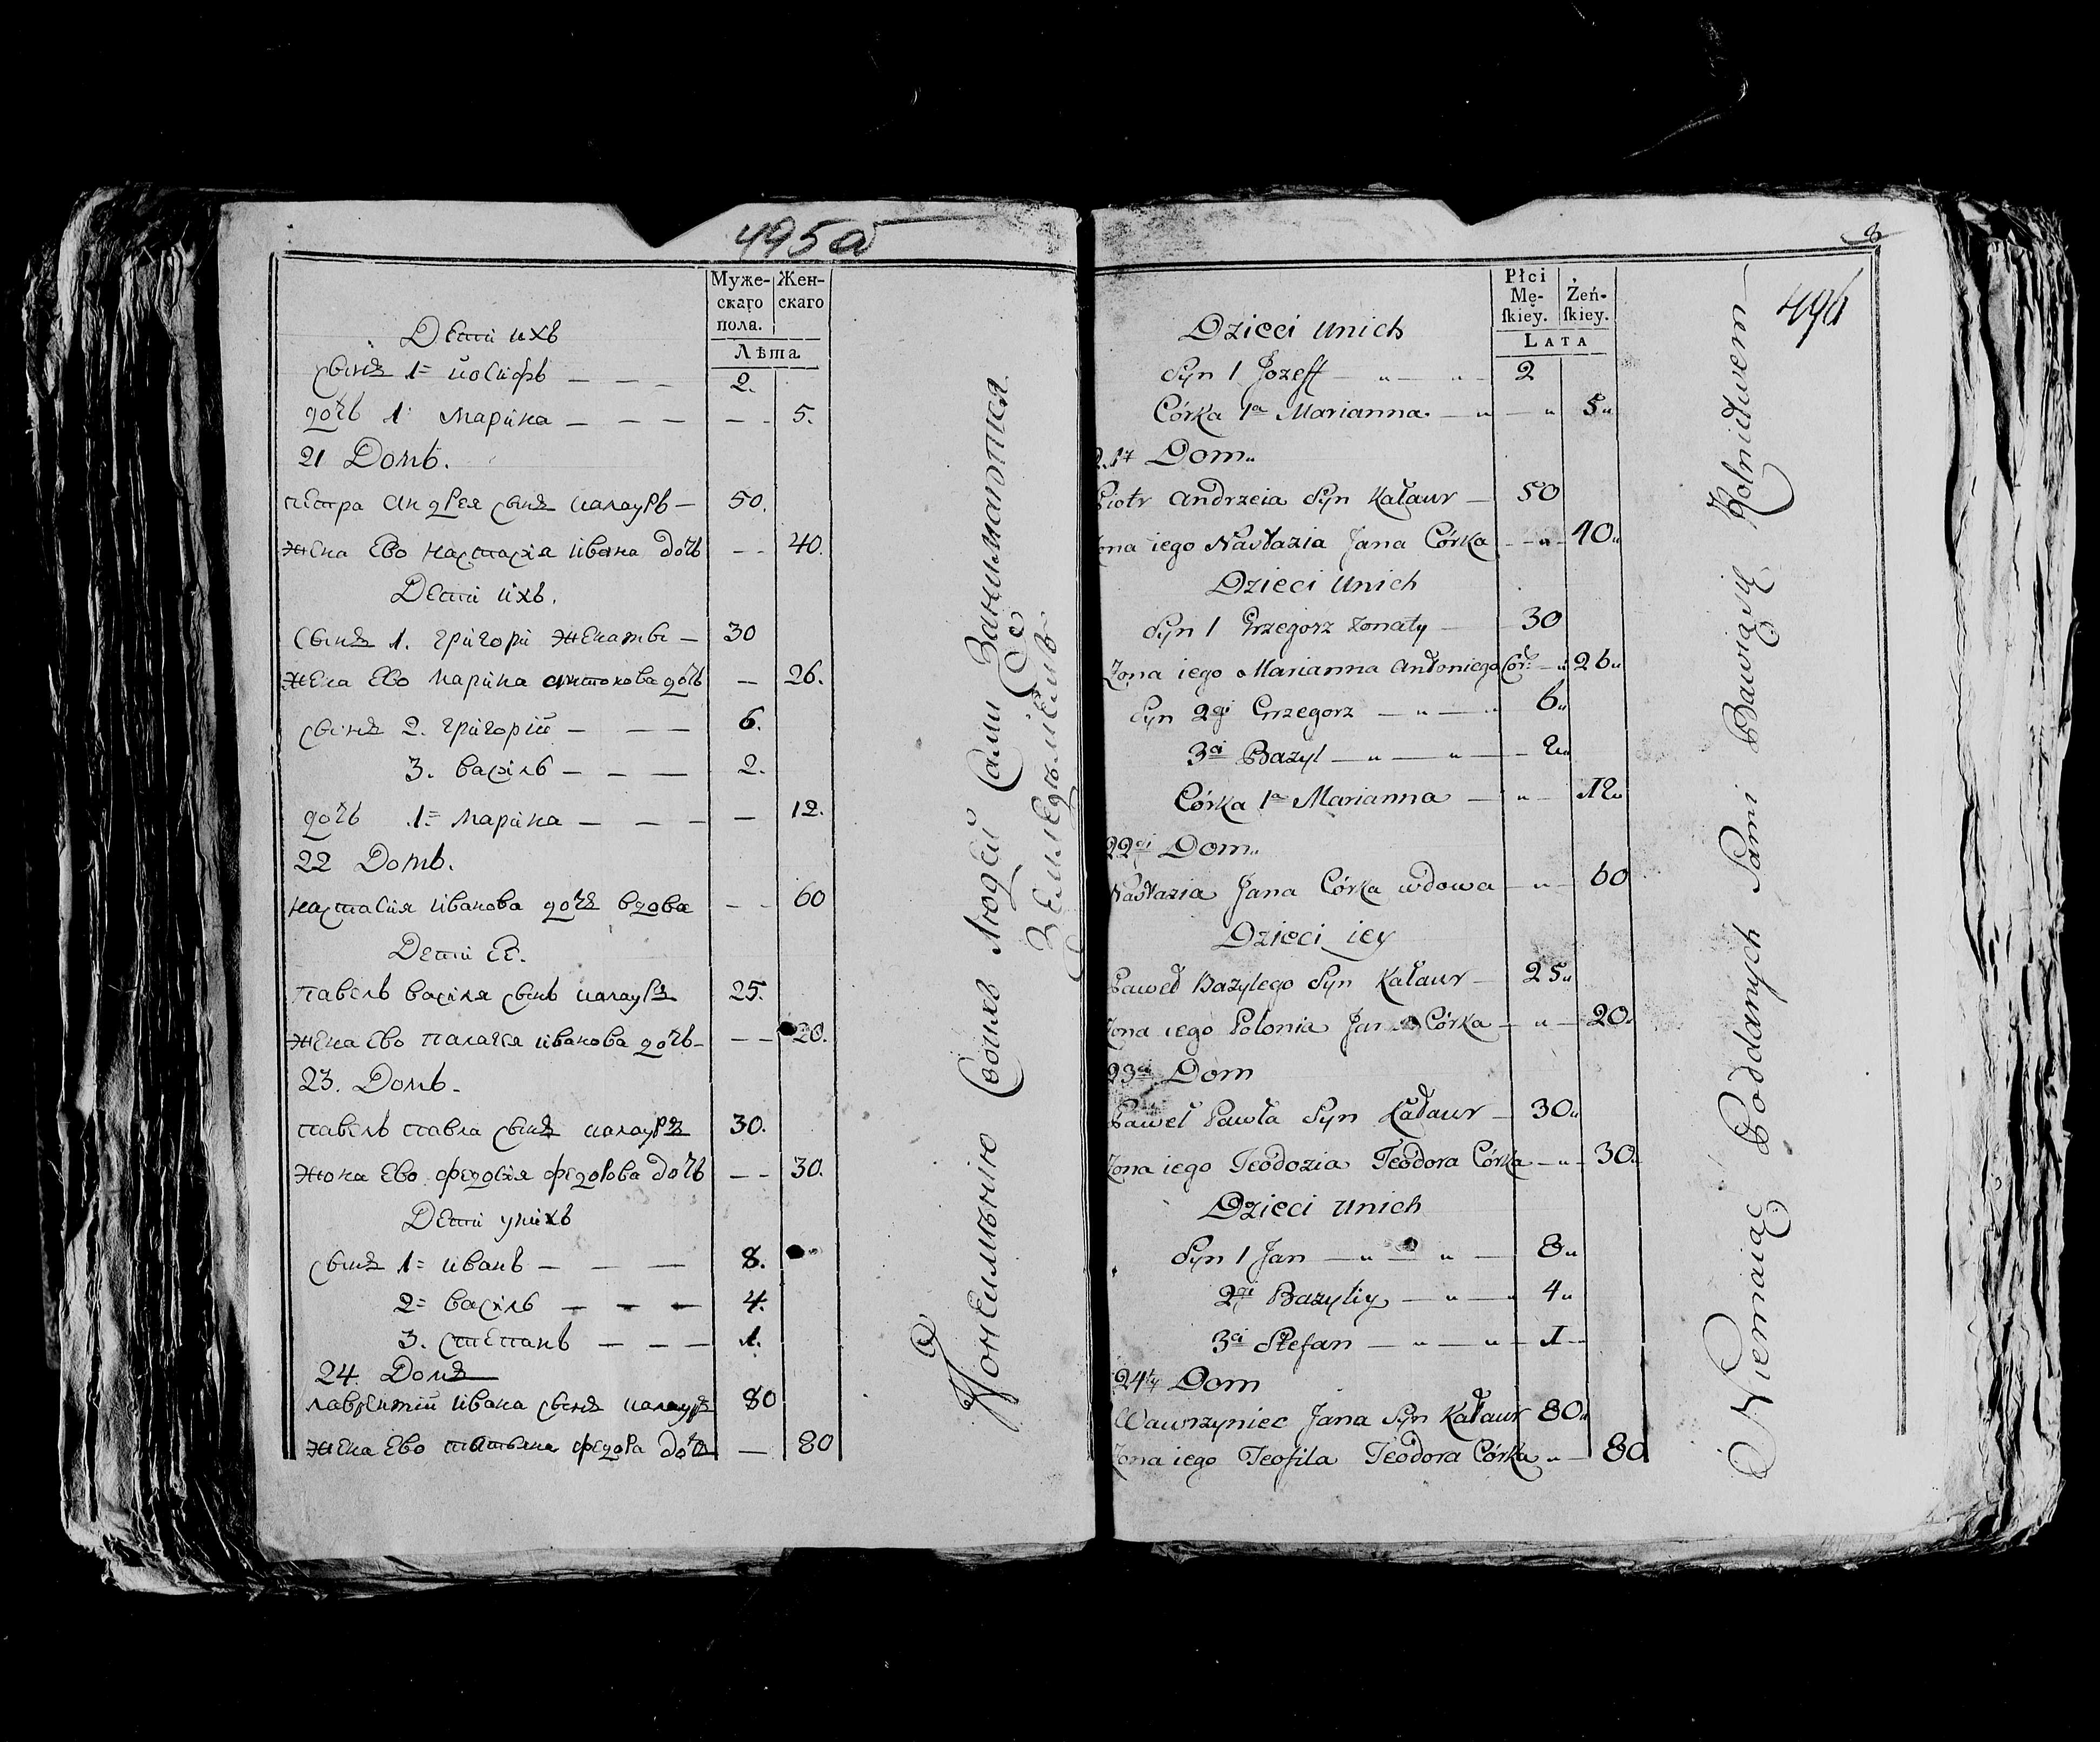 495а
Муже- Жен-
скаго скаго
пола.
Лѣта
Дети ихъ
сынъ 1= иосифъ — — — 2.
дочь 1. марина — — — — - 5.
21 Домъ.
петра андрея сынъ калауръ — 50.
жена ево настасия ивана дочь - - 40.
Дети ихъ.
сынъ 1. григори женатъ — 30
жена ево марина антонова дочь — 26.
сынъ 2. григорий — — — 6.
3. василь — — — 2.
дочь 1= марина — — — — 12.
22 Домъ.
настасия иванова дочъ вдова - - 60
Дети ее.
павелъ василя сынъ калауръ 25.
жена ево палагея иванова дочь - - - 20.
23. Домъ -
павелъ павла сынъ калауръ 30.
жона ево федосия федорова дочь - - 30.
Дети унихъ
сынъ 1= иванъ — — — 8.
2= василь — — — 4.
3. степанъ — — — 1.
24. Домъ
лаврентий ивана сынъ калауръ 80
жена ево татьяна федора дочъ — 80
Понеимѣнию Своихъ Людей Сами Занимаются
Земледѣлиемъ
8
496
Płci
Mę- Żeń-
ſkiey. ſkiey.
LATA
Dzieci unich
Syn 1 Jozeff — „ — „ - 2
Córka 1a Marianna — „ — „ 5„
Dom„
Piotr Andrzeia Syn Kaławr — 50
żona iego Nastazia Jana Córka - - „ - 40„
Dzieci unich
Syn 1 Grzegorz żonaty — 30
Zona iego Marianna Antoniego Cór: — „ 26„
Syn 2gi Grzegorz — „ — „ 6„
3ci Bazyl — „ — „ — 2„
Córka 1a Marianna — „ — 12„
22gi Dom„
Nastazia Jana Córka wdowa — „ — 60
Dzieci iey
Paweł Bazylego Syn Kaławr — 25„
Zona iego Polonia Jana Córka — „ — 20„
23ci Dom
Paweł Pawła Syn Kaławr — 30„
Zona iego Teodozia Teodora Córka — „ - 30„
Dzieci unich
Syn 1 Jan — „ — „ — 8„
2gi Bazyliy — „ — „ 4„
3ci Stefan — „ — „ — 1 —
24ty Dom
Wawrzyniec Jana Syn Kaławr 80„
Zona iego Teofila Teodora Córka „ — 80
Niemaiąc Poddanych Sami Bawią się Rolnictwem